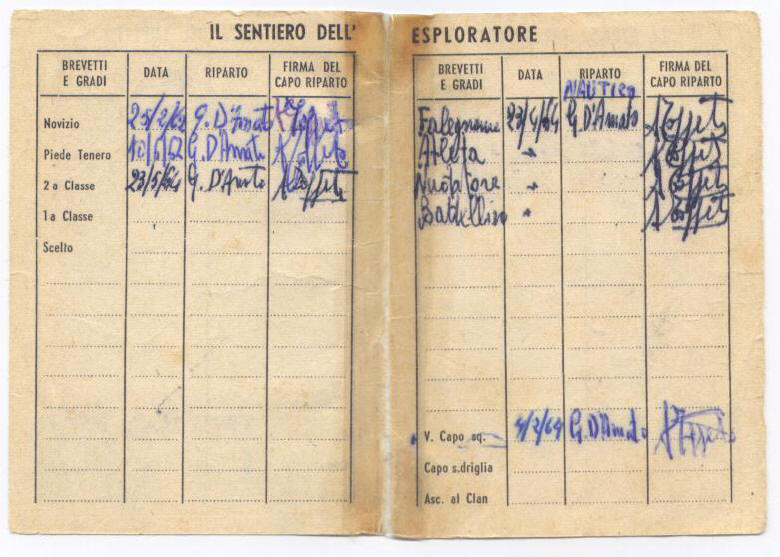 IL SENTIERO DELL' ESPLORATORE
BREVETTI E GRADI DATA RIPARTO FIRMA DEL CAPO RIPARTO
Novizio G. D'Amato
Piede Tenero G. D'Amato
2a Classe 23/5/64 G. D'Amato
1a Classe
Scelto
BREVETTI E GRADI DATA RIPARTO NAUTICO FIRMA DEL CAPO RIPARTO
Falegname 23/4/64 G. D'Amato
Atleta "
Nuotatore "
Battelliere "
V. Capo sq. G. D'Amato
Capo s.driglia
Asc. al Clan